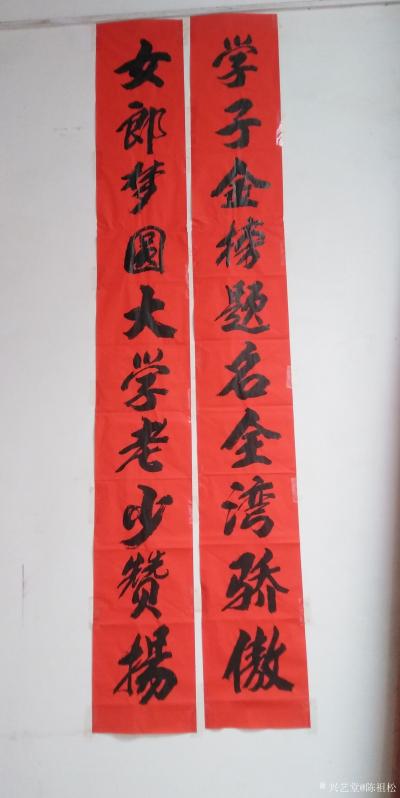 学子金榜题名全湾骄傲
女郎梦圆大学老少赞揚
兴艺堂@陈祖松